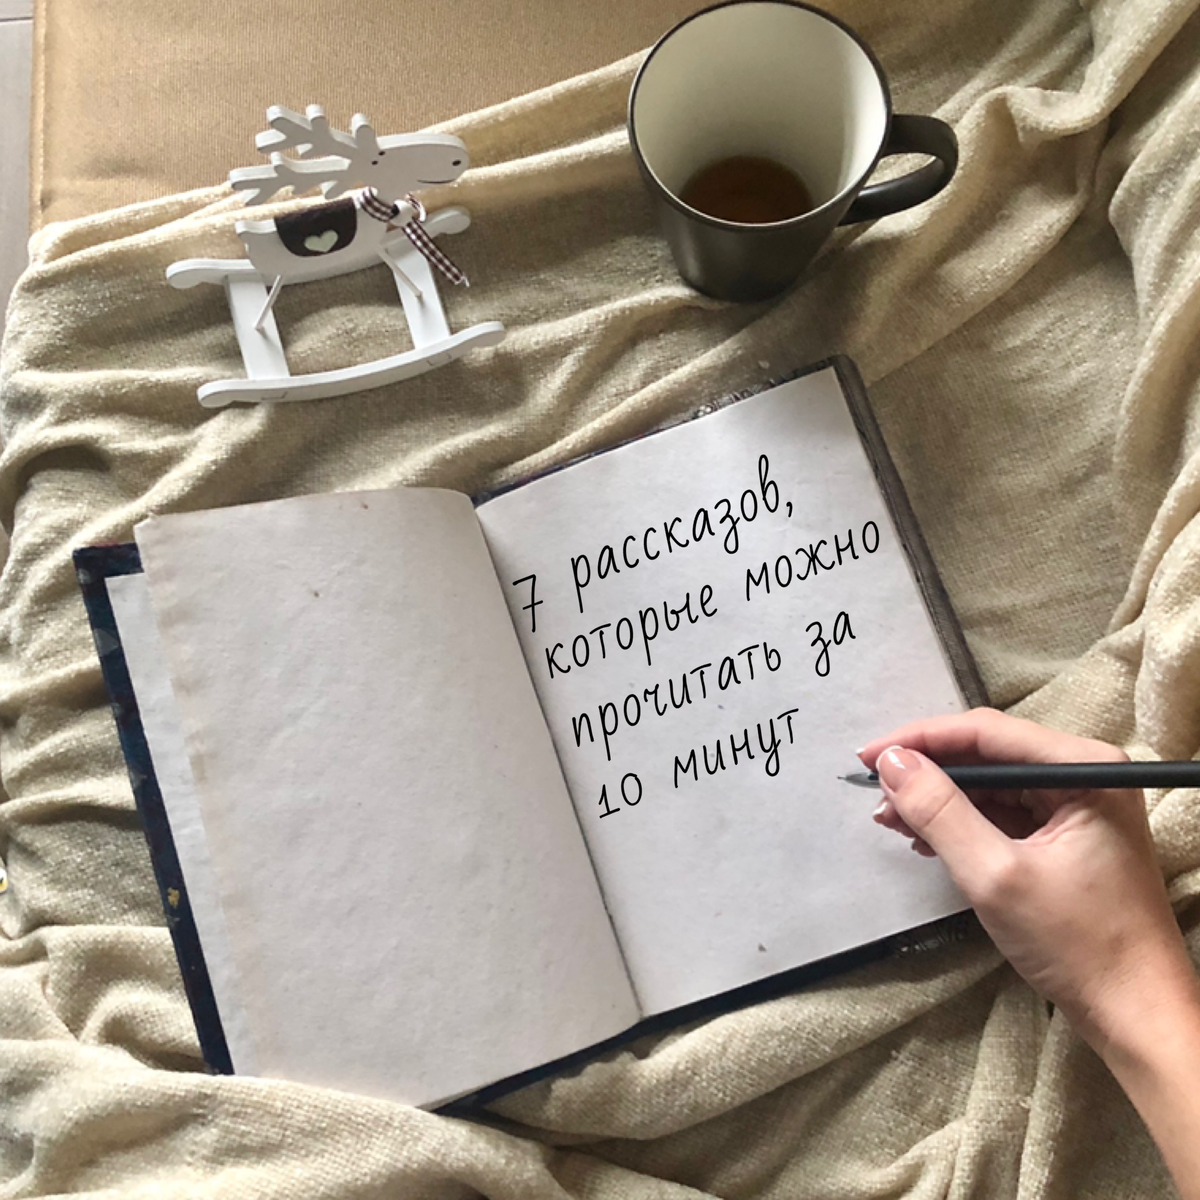 7 рассказов,
которые можно
прочитать за
10 минут